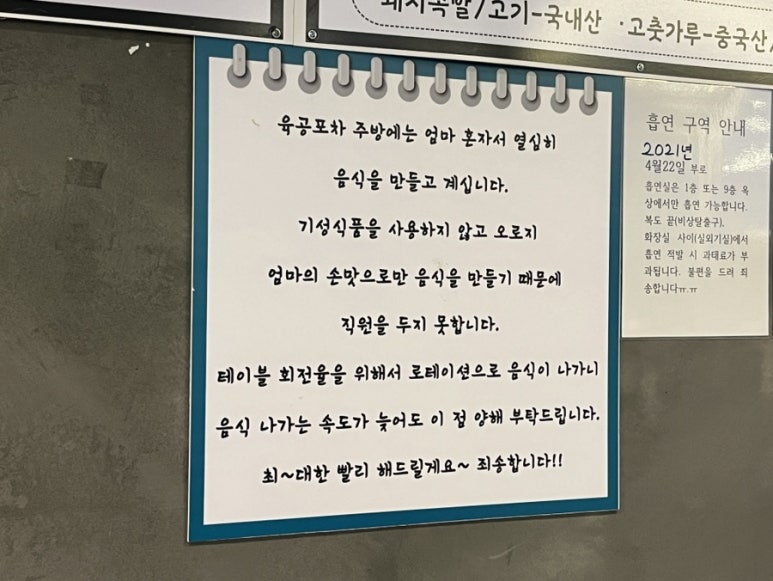 돼지족발/고기-국내산 ·고춧가루-중국산/
육공포차 주방에는 엄마 혼자서 열심히
음식을 만들고 계십니다.
기성식품을 사용하지 않고 오로지
엄마의 손맛으로만 음식을 만들기 때문에
직원을 두지 못합니다.
테이블 회전율을 위해서 로테이션으로 음식이 나가니
음식 나가는 속도가 늦어도 이 점 양해 부탁드립니다.
최~대한 빨리 해드릴게요~ 죄송합니다!!
흡연 구역 안내
2021년
4월22일 부로
흡연실은 1층 또는 9층 옥
상에서만 흡연 가능합니다.
복도 끝(비상탈출구).
화장실 사이(실외기실)에서
흡연 적발 시 과태료가 부
과됩니다. 불편을 드려 죄
송합니다ㅠ.ㅠ